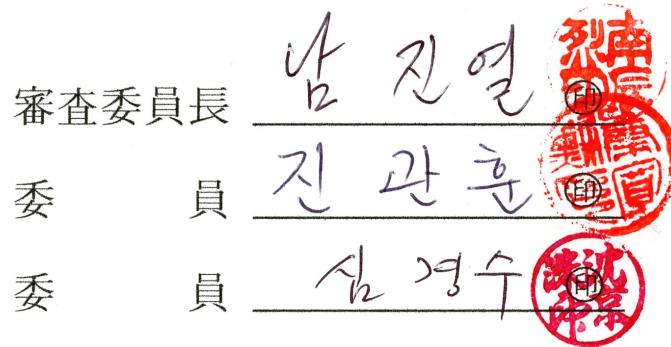 審査委員長 남 진 열 ㊞
委 員 진 관 훈 ㊞
委 員 심 경 수 ㊞